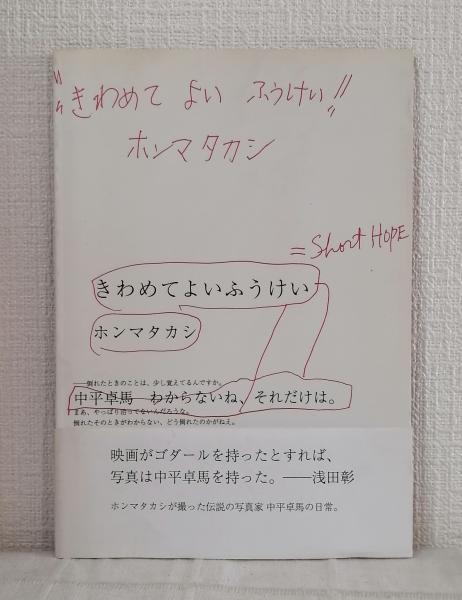 "きわめて よい ふうけい!!"
ホンマタカシ
= Short HOPE
きわめてよいふうけい
ホンマタカシ
──倒れたときのことは、少し覚えてるんですか。
中平卓馬　わからないね、それだけは。
まあ、やっぱり治ってないんだろうな。
倒れたそのときがわからない、どう倒れたのかがねえ。
映画がゴダールを持ったとすれば、
写真は中平卓馬を持った。──浅田彰
ホンマタカシが撮った伝説の写真家 中平卓馬の日常。